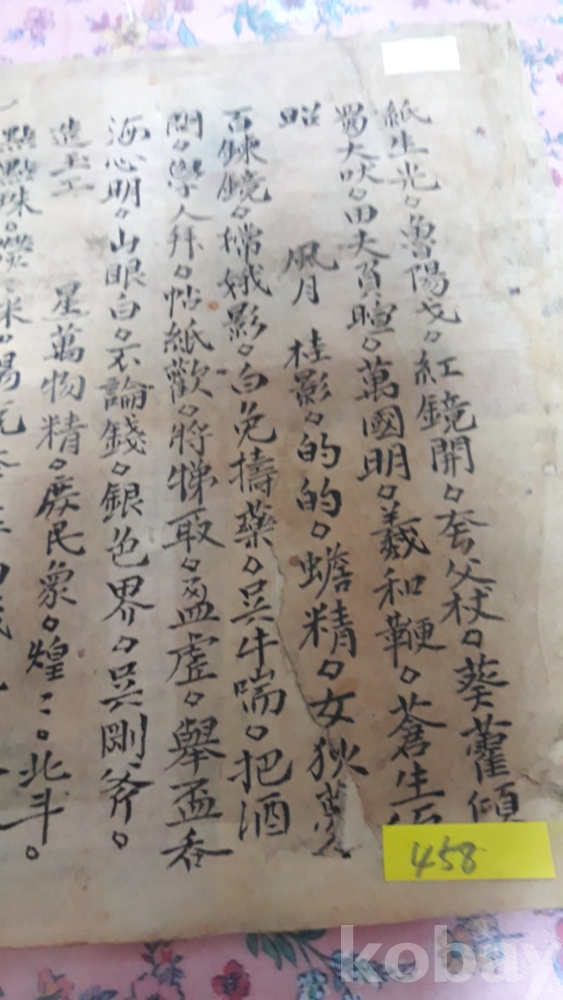 紙生光。魯陽戈。紅鏡開。夸父杖。葵藿傾
蜀犬吠。田夫負暄。萬國明。羲和鞭。蒼生
昭 風月 桂影。的的。蟾精。女狄
百鍊鏡。嫦娥影。白兔擣藥。吳牛喘。把酒
問。學人拜。帖紙歡。將梯取。盈虛。舉盃吞
海心明。山眼白。不論錢。銀色界。吳剛斧。
造玉工 星萬物精。庶民象。煌〻。北斗。
點點珠。
458
kobay